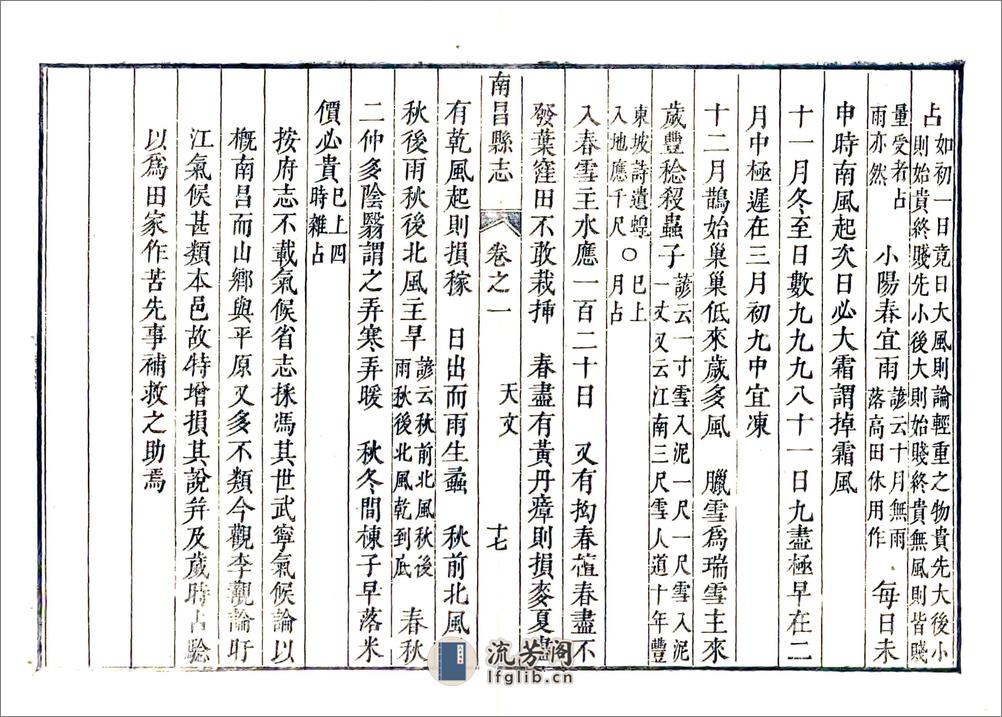 占如初一日竟日大風則論輕重之物貴先大後小
則始貴終賤先小後大則始賤終貴無風則皆賤
量受者占
雨亦然　小陽春宜雨諺云十月無雨
落高田休用作　每日未
申時南風起次日必大霜謂掉霜風
十一月冬至日數九九九八十一日九盡極早在二
月中極遲在三月初九中宜凍
十二月鵲始巢巢低來歲多風　臘雪為瑞雪主來
歲豐稔殺蟲子諺云一寸雪入泥一尺一尺雪入泥
一丈又云江南三尺雪人道十年豐
東坡詩遺蝗
入地應千尺〇已上
月占
入春雪主水應一百二十日　又有拘春𦸈春盡不
發葉窪田不敢栽揷　春盡有黃丹瘴則損麥夏
有乾風起則損稼　日出而雨生蟊　秋前北風
秋後雨秋後北風主旱諺云秋前北風秋後
雨秋後北風乾到底　春秋
二仲多陰翳謂之弄寒弄暖　秋冬間楝子早落米
價必貴已上四
時雜占
按府志不載氣候省志採馮其世武寧氣候論以
槪南昌而山鄉與平原又多不類今觀李覯論盱
江氣候甚類本邑故特增損其說并及歲時占驗
以爲田家作苦先事補救之助焉
南昌縣志　卷之一　天文　十七
流芳閣
lfglib.cn